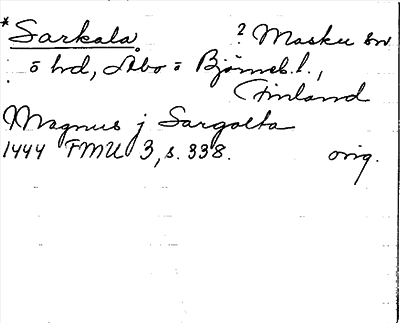 *Sarkala ? Masku sn
ö hd, Åbo o Björneb. l.,
Finland
Magnus j Sargalta
1444 FMU 3, s. 338. orig.